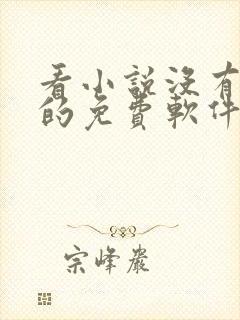 看小說沒有
的免費軟件
宗峰巖